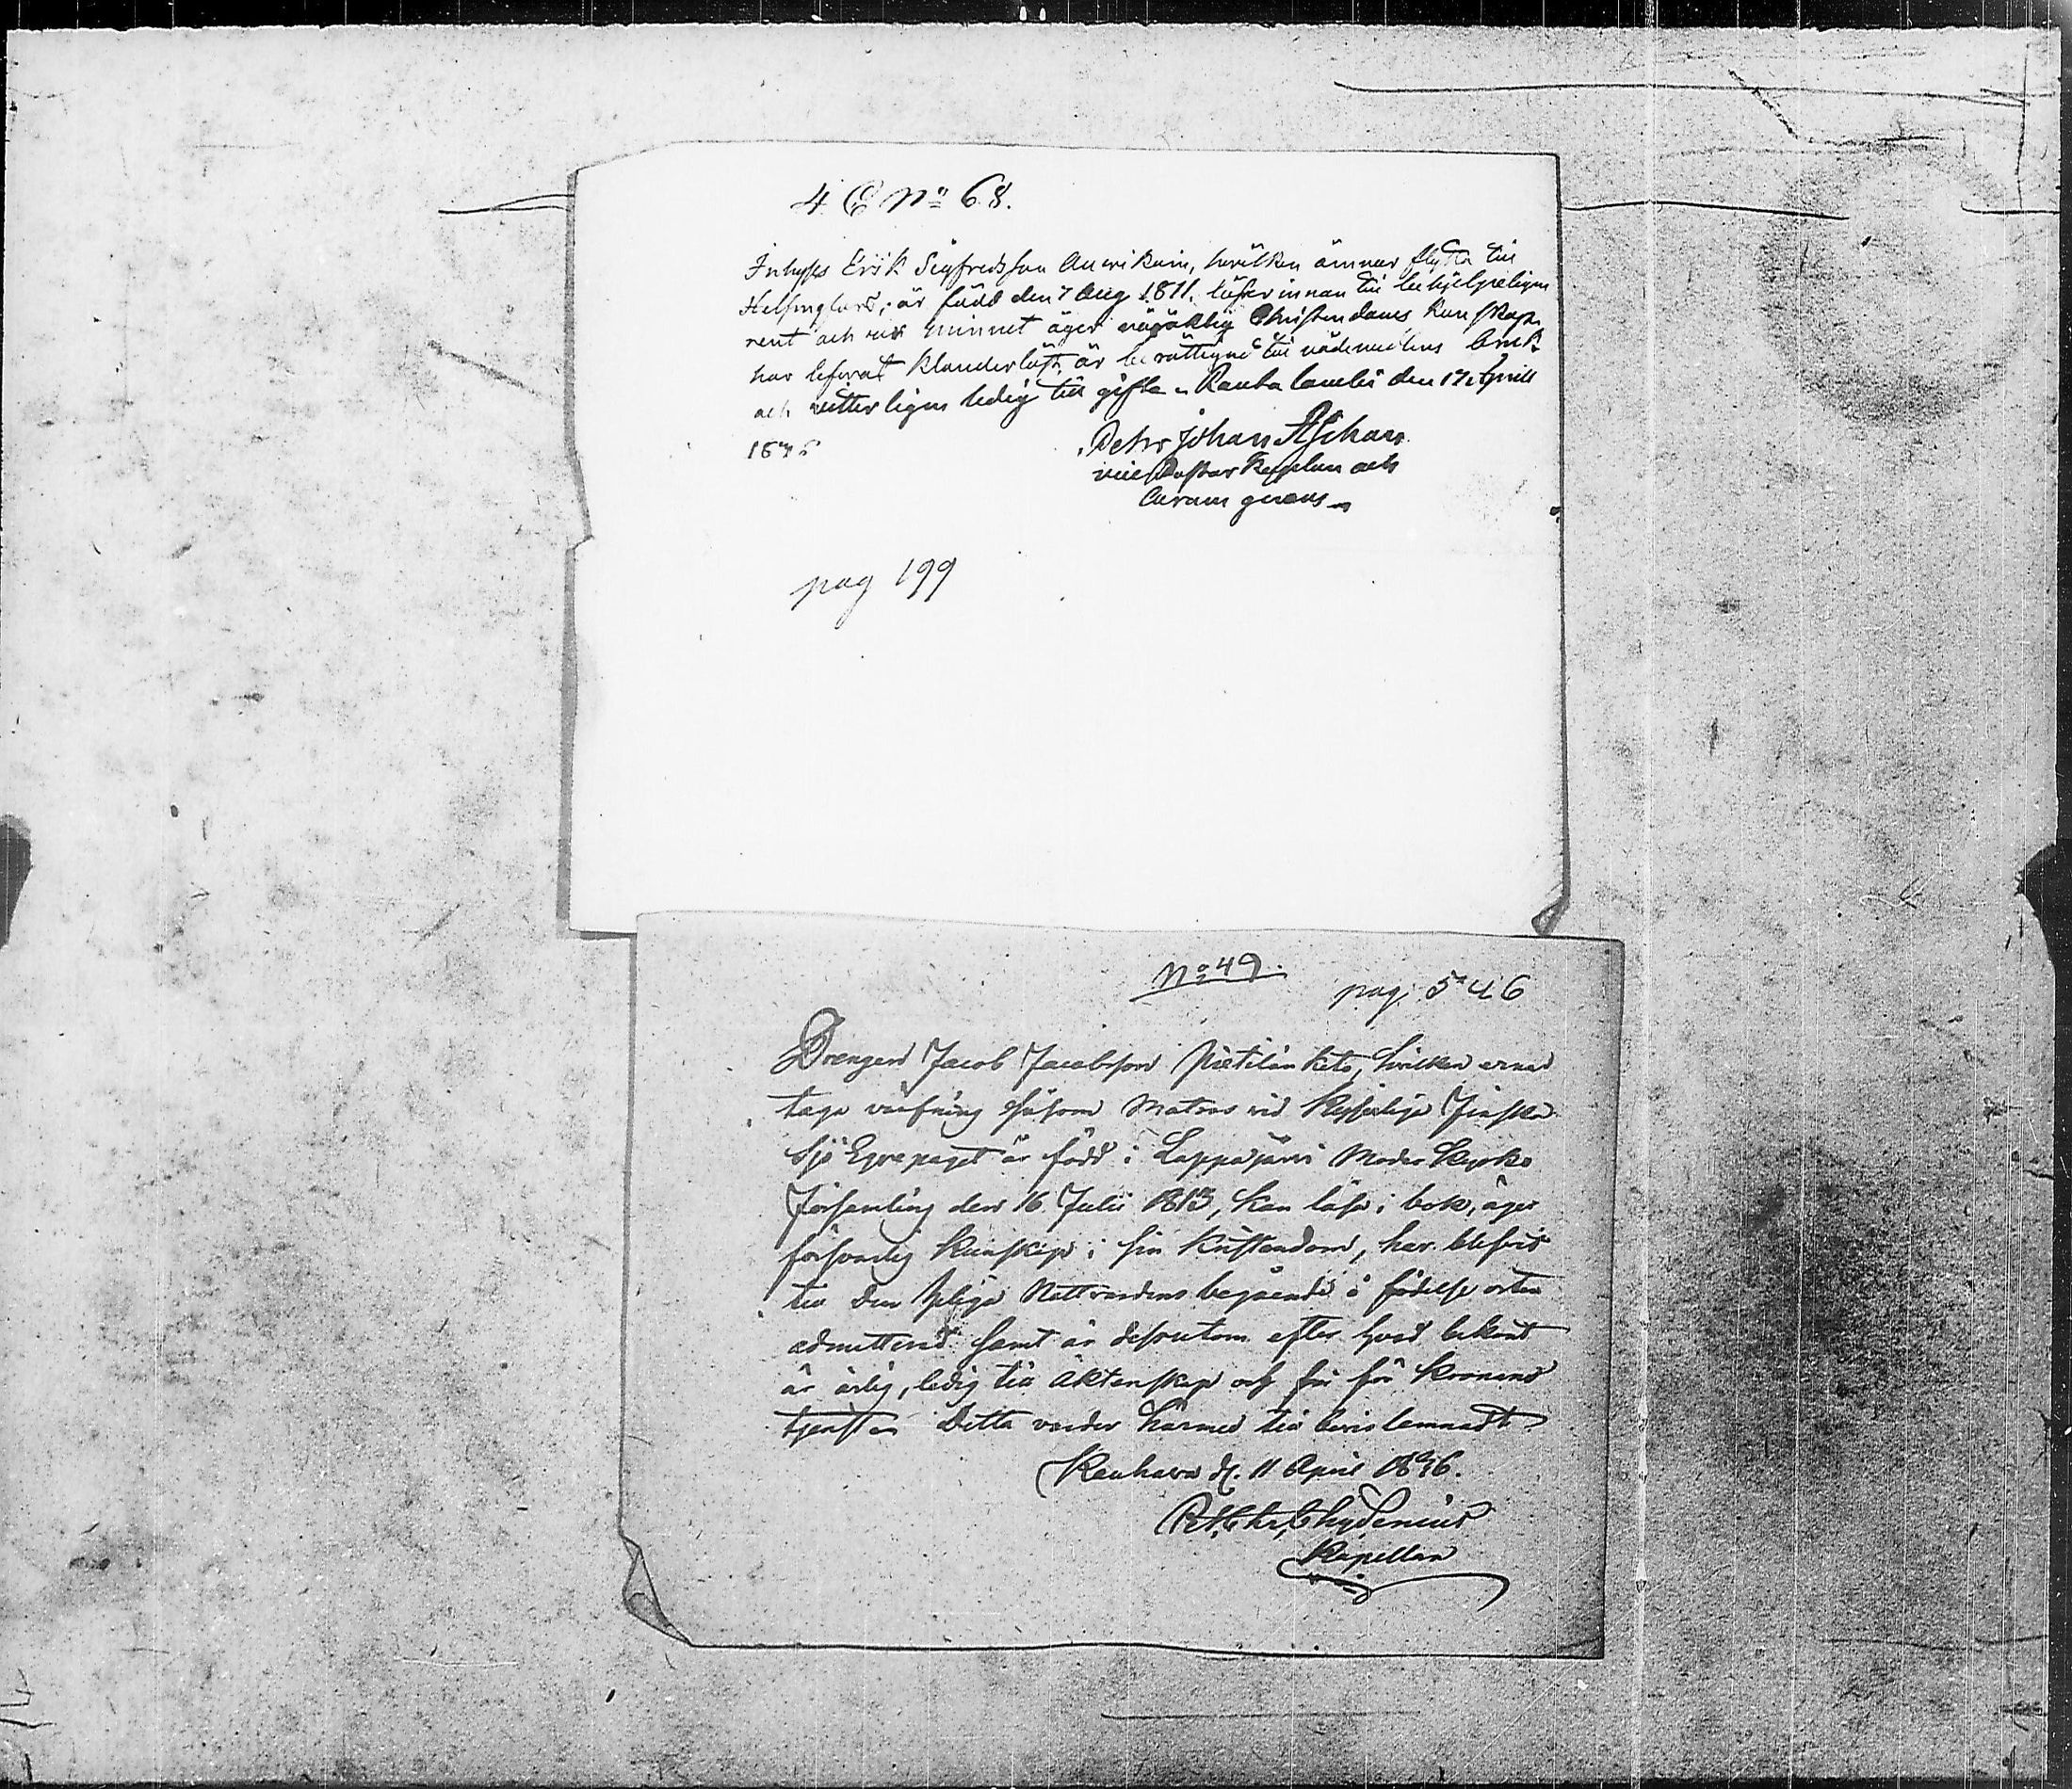 4. E No 68.
Inhyses Erik Sigfredsson Auvikain, hvilken ämnar flytta till
Helsingfors, är född den 7 Aug 1811, läser innan till behjelpeligen
rent och ur minnet äger nöjaktig Christendoms kunskap,
har lefvat klanderlöst, är berättigad till nådemedlens bruk
och vitterligen ledig till gifte. Rautalambi den 17 Aprill
183
Petr Johan Aschan
vice Pastor Kapellan och
Curam gerens
pag 199
No 49.
pag. 546
Drengen Jacob Jacobsson Pietilänketo, hvilken ernar
taga värfning såsom Matros vid Kejserliga Finska
Sjö Eqvipaget är född i Lappajärvi Moder Kyrko
Församling den 16 Julii 1813, kan läsa i bok, äger
försvarlig kunskap i sin Kristendom, har blifvit
till den heliga Nattvardens begående i födelse orten
admitterad samt är dessutom efter hvad bekant
är ärlig, ledig till äktenskap och fri för Kronans
tjenst. Detta varder härmed till bevis lemnadt
Kauhava d. 11 April 1836.
Chydenius
Kapellan